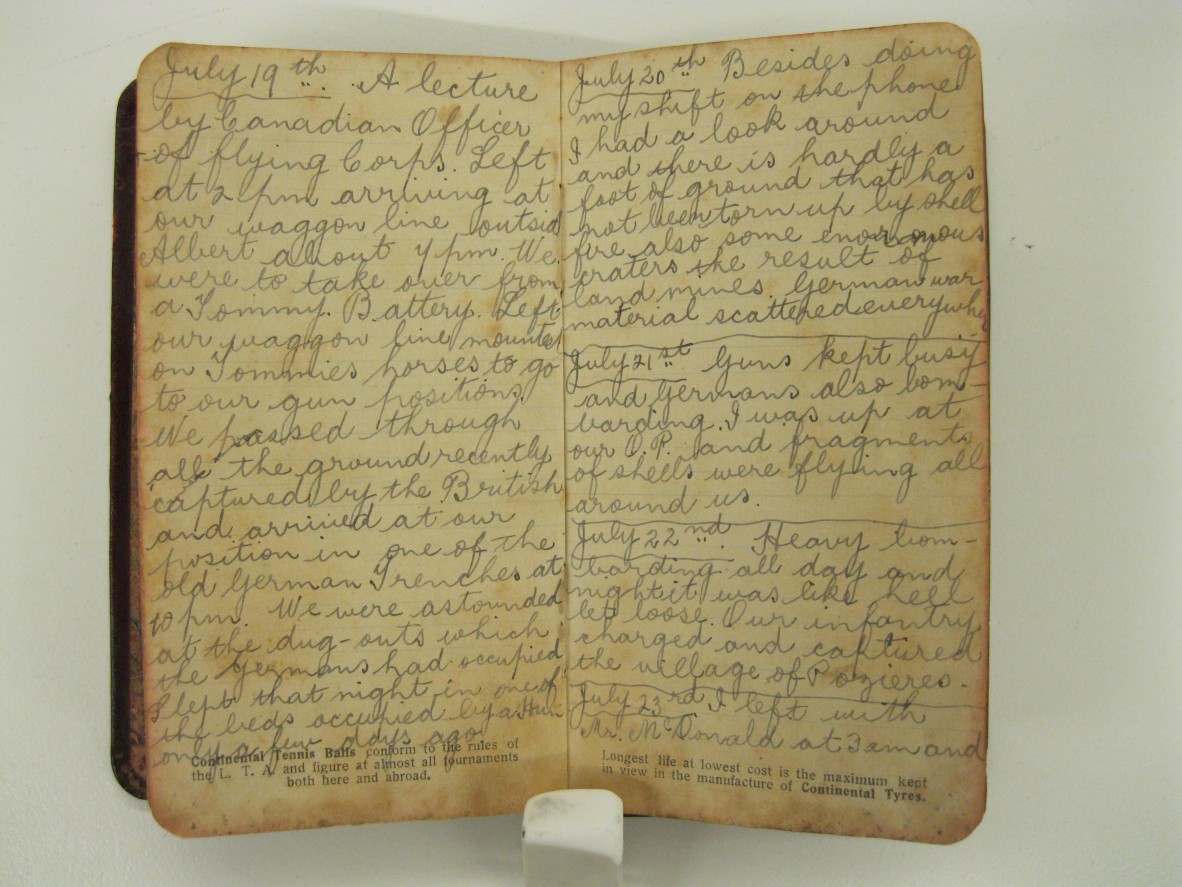 July 19th. A lecture
by Canadian Officer
of flying Corps. Left
at 2 pm arriving at
our waggon line outsid
Albert about 4 pm. We
were to take over from
a Tommy. Battery. Left
our waggon line mounted
on Tommies horses to go
to our gun positions.
We passed through
all the ground recently
captured by the British
and arrived at our
position in one of the
old German Trenches at
10 pm. We were astounded
at the dug-outs which
the Germans had occupied
Slept that night in one of
the beds occupied by a Hun
only a few days ago
Continental Tennis Balls conform to the rules of
the L. T. A. and figure at almost all tournaments
both here and abroad.
July 20th Besides doing
my shift on the phone
I had a look around
and there is hardly a
foot of ground that has
not been torn up by shell
fire also some enormous
craters the result of
land mines. German war
material scattered everywhe
July 21st Guns kept busy
and Germans also bom-
barding. I was up at
our O.P. and fragments
of shells were flying all
around us.
July 22nd. Heavy bom-
barding all day and
night it was like hell
let loose. Our infantry
charged and captured
the village of Pozieres.
July 23rd I left with
Mr. McDonald at 3 am and
Longest life at lowest cost is the maximum kept
in view in the manufacture of Continental Tyres.